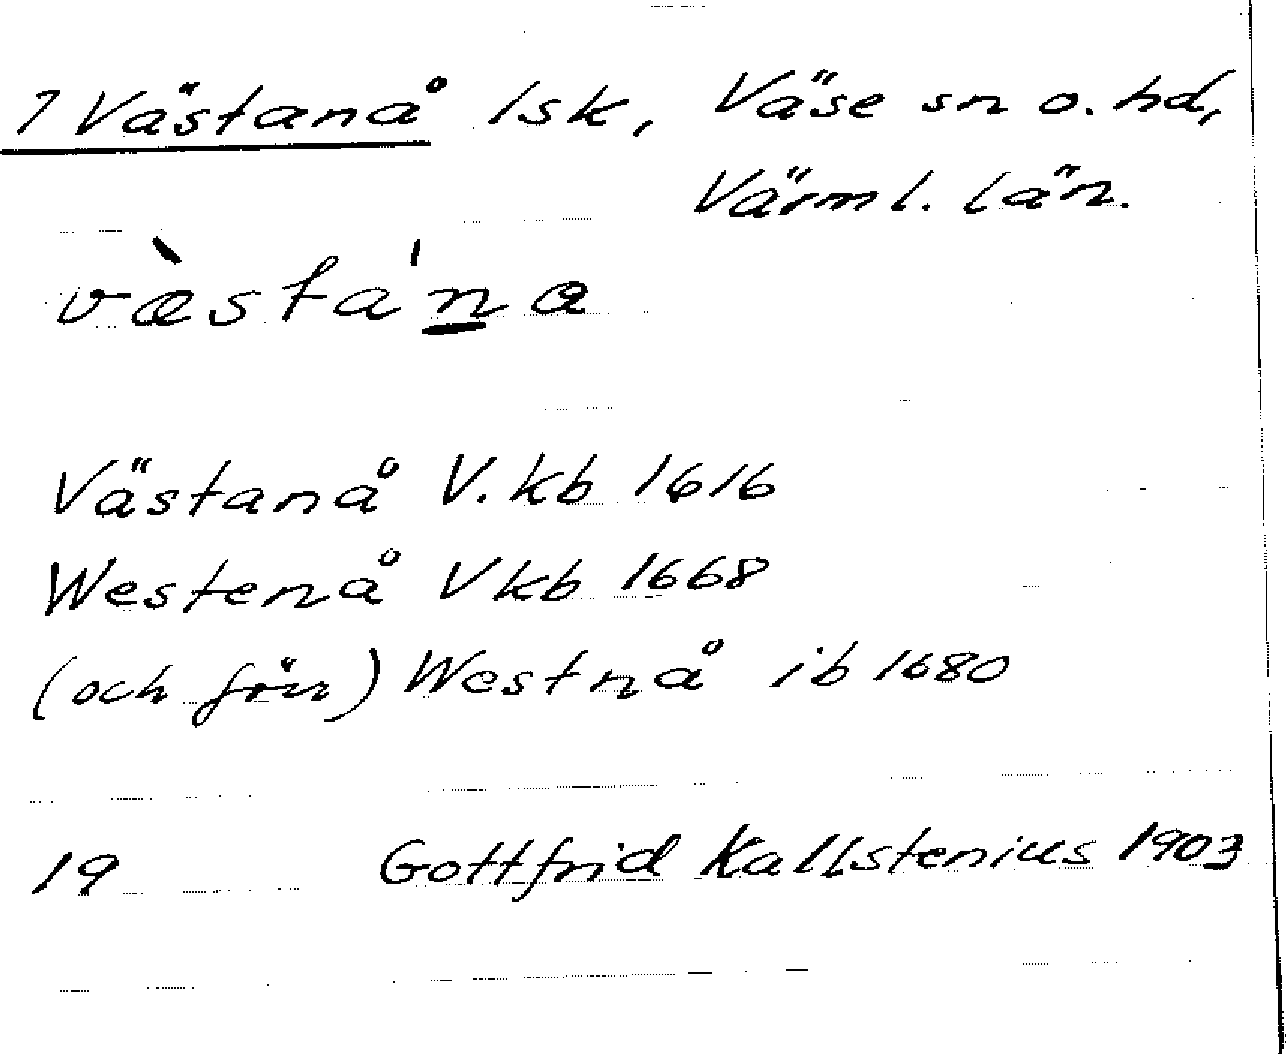 7 Västanå lsk, Väse sn o. hd,
Värml. län.
væ̀sta'na
Västanå V. kb 1616
Westenå Vkb 1668
(och förr) Westnå ib 1680
19 Gottfrid Kallstenius 1903